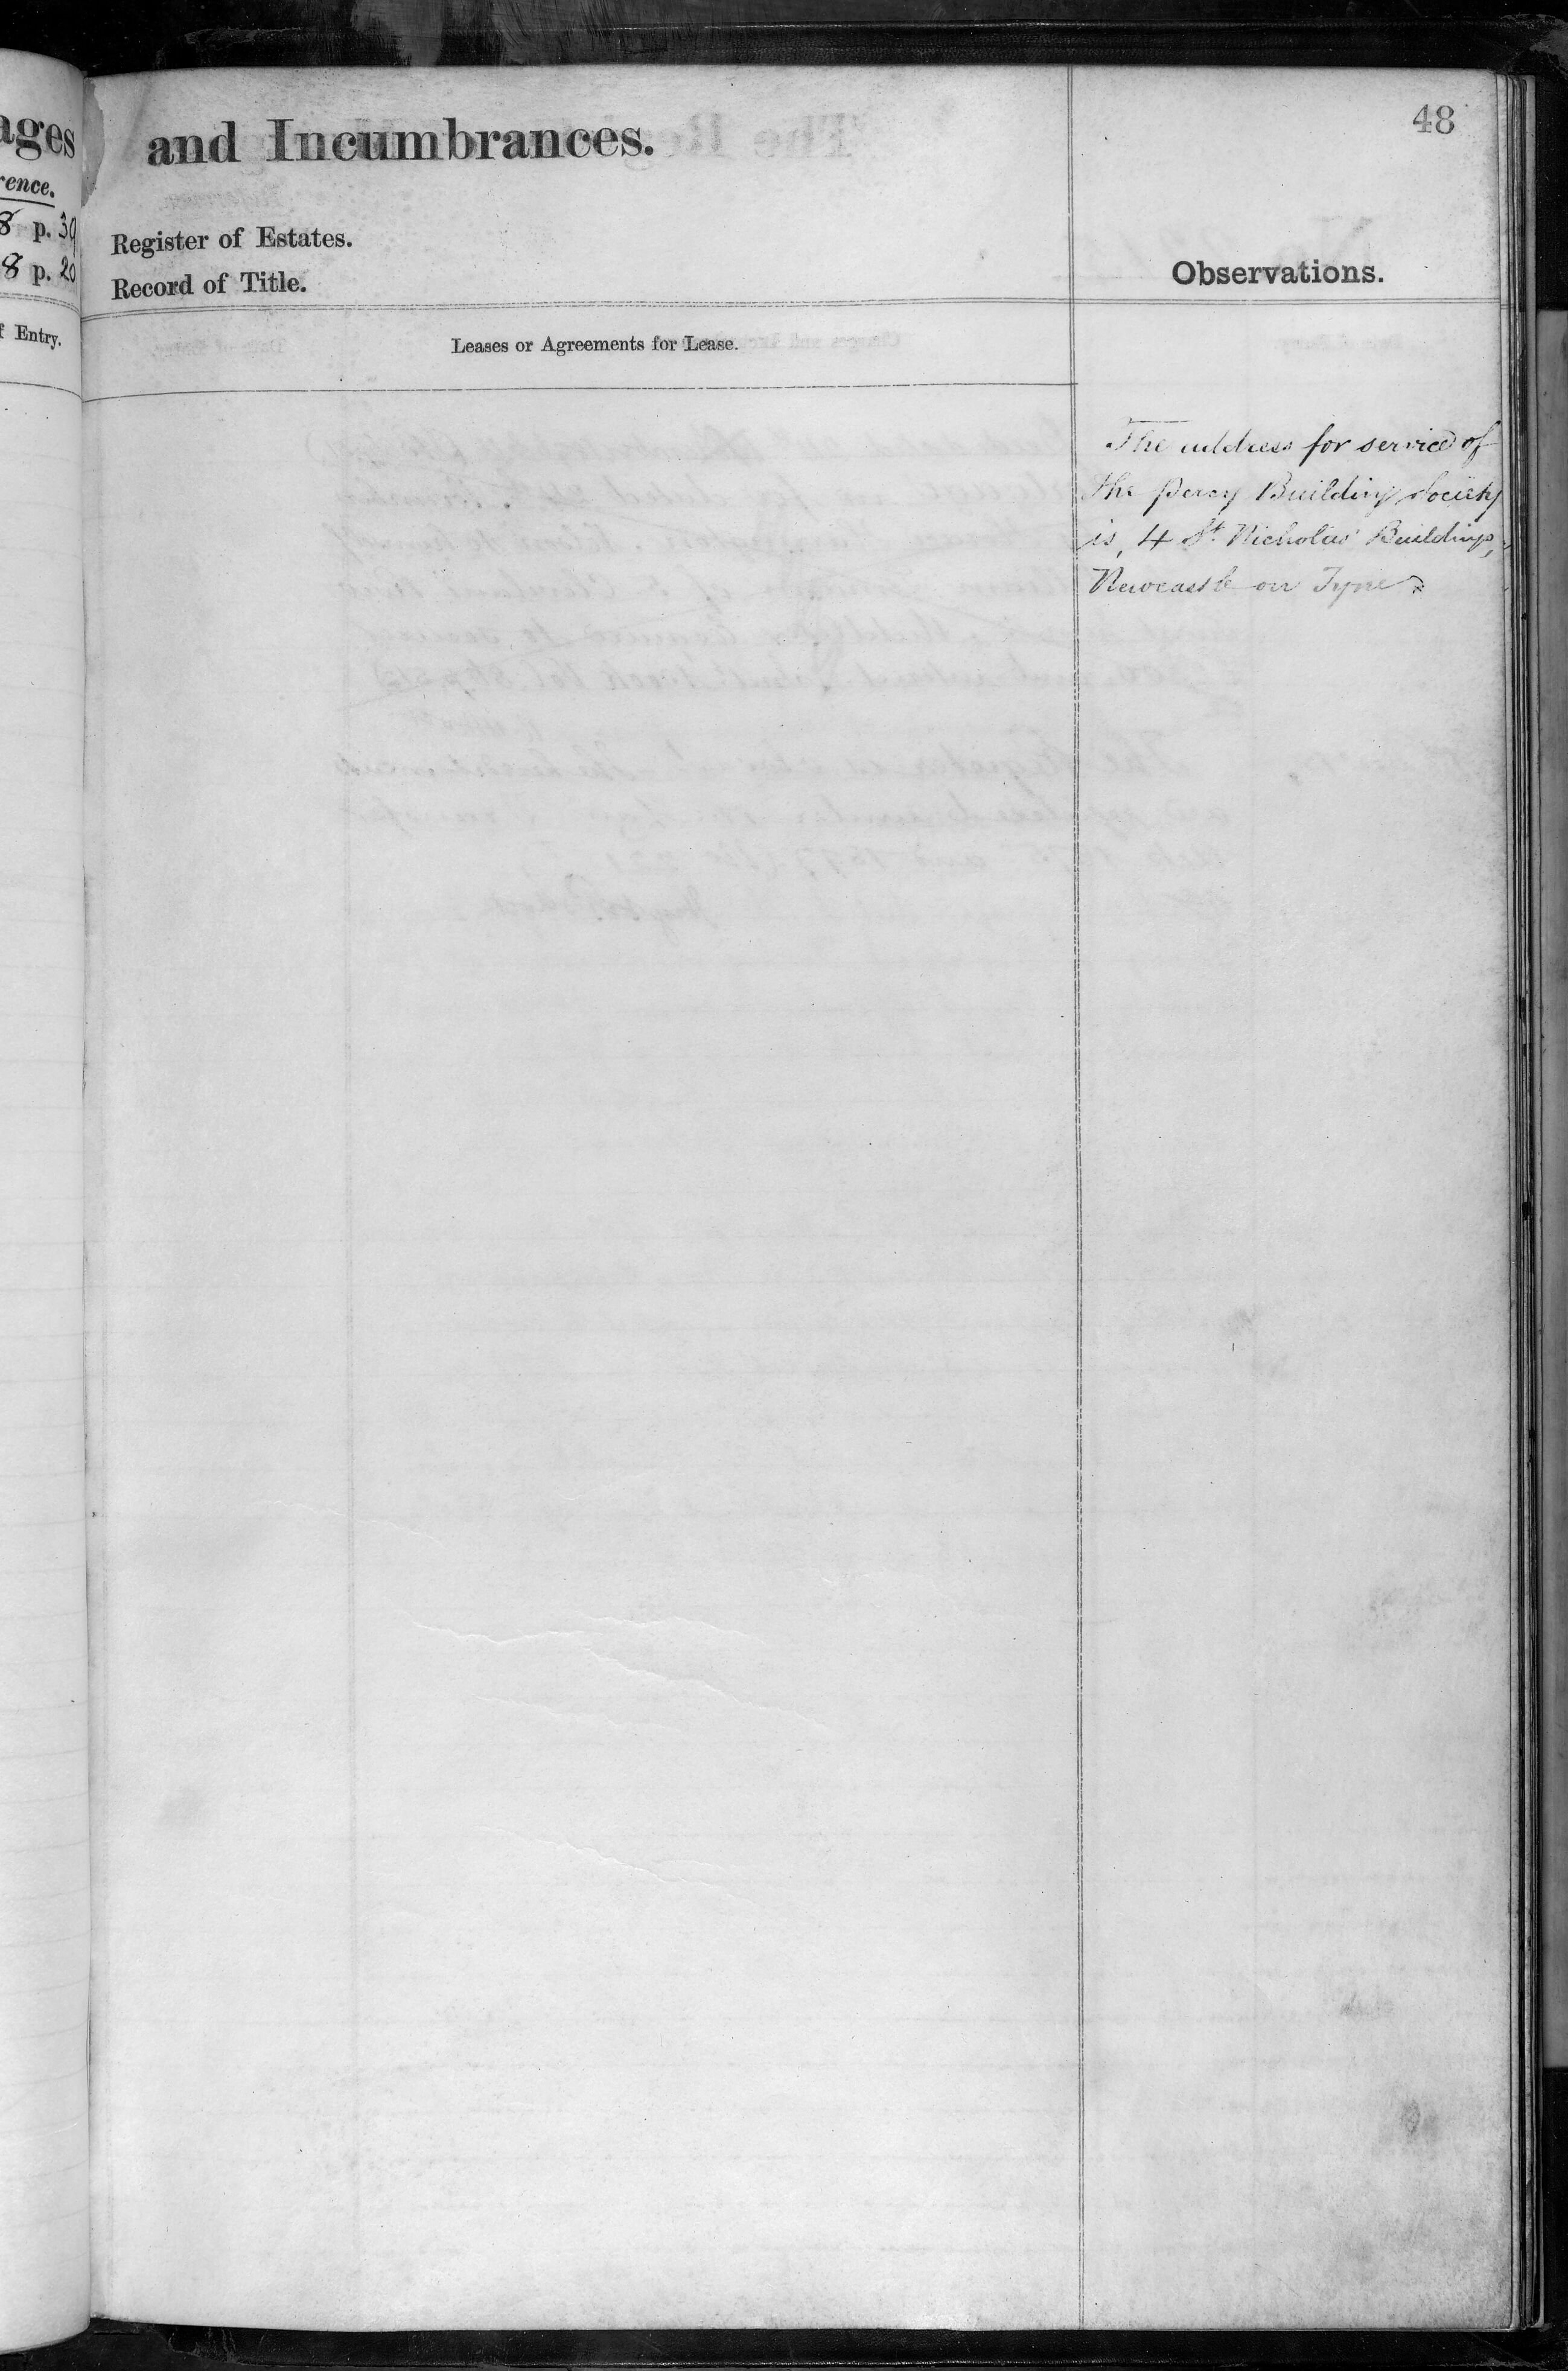 ages
rence.
8 p. 39
8 p. 20
f Entry.
48
and Incumbrances.
Register of Estates.
Record of Title.
Observations.
Leases or Agreements for Lease.
The address for service of
the Percy Building Society
is, 4 St. Nicholas' Buildings,
Newcastle on Tyne